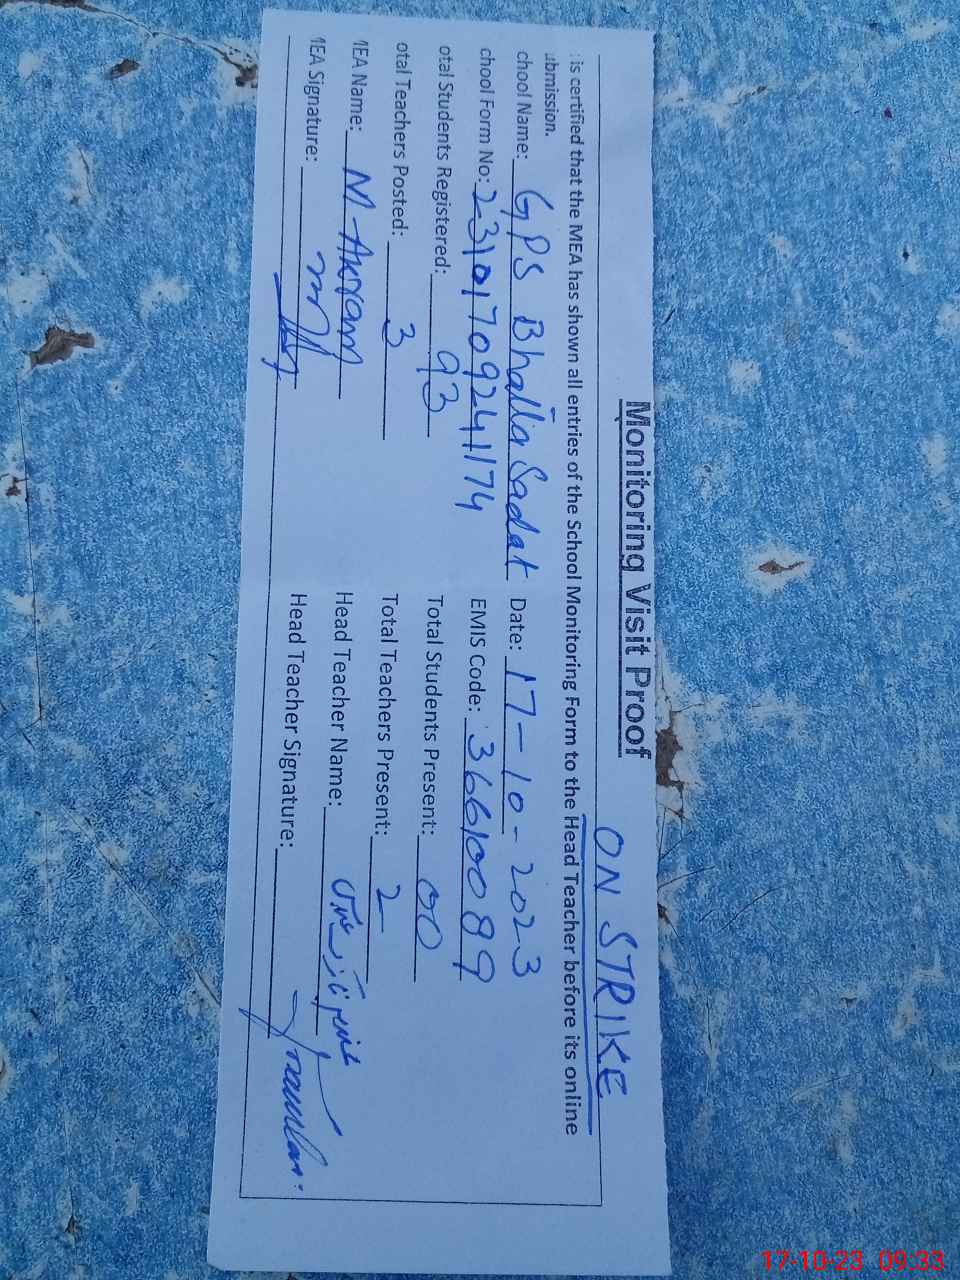 Monitoring Visit Proof
ON STRIKE
is certified that the MEA has shown all entries of the School Monitoring Form to the Head Teacher before its online
ubmission.
chool Name: GPS Bhalla Sadat Date: 17-10-2023
chool Form No: 23101709241174 EMIS Code: 36610089
otal Students Registered: 93 Total Students Present: 00
otal Teachers Posted: 3 Total Teachers Present: 2
MEA Name: M-Akram Head Teacher Name:
MEA Signature: Head Teacher Signature:
17-10-23 09:33